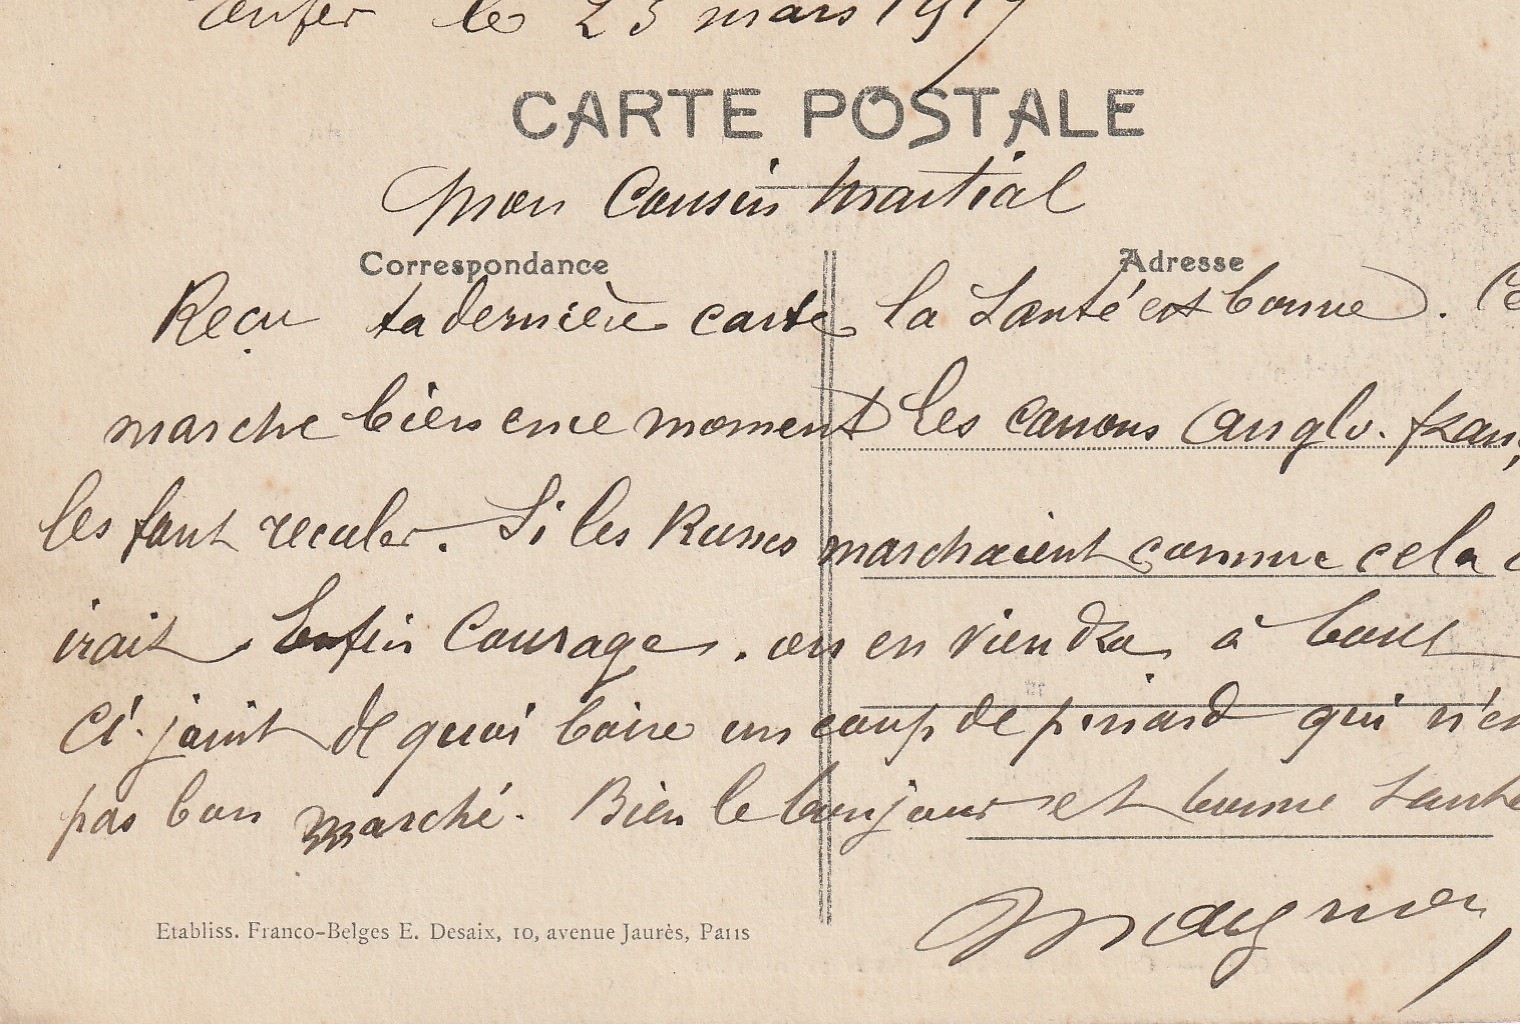 enfer le 23 mars 1917
CARTE POSTALE
Mon Cousin Martial
Correspondance Adresse
Reçu ta dernière carte la Santé est bonne. Ce
marche bien en ce moment les canons Anglo-franç
les font reculer. Si les Russes marchaient comme cela
irait. Enfin Courage. on en viendra à bout
Ci-joint de quoi boire un coup de pinard qui n'en
pas bon marché. Bien le bonjour et bonne Santé
Etabliss. Franco-Belges E. Desaix, 10, avenue Jaurès, Paris